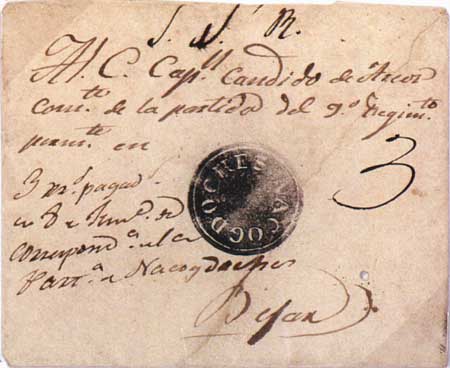 S. S. N.
Al C. Cap.n Candido de Arcos
Com.te de la partida del 9.o Regim.to
perm.te en
3 r.s pagad.
en 8 de
correspond.a
Nacogdoches
NACOGDOCHES
3
Bejar